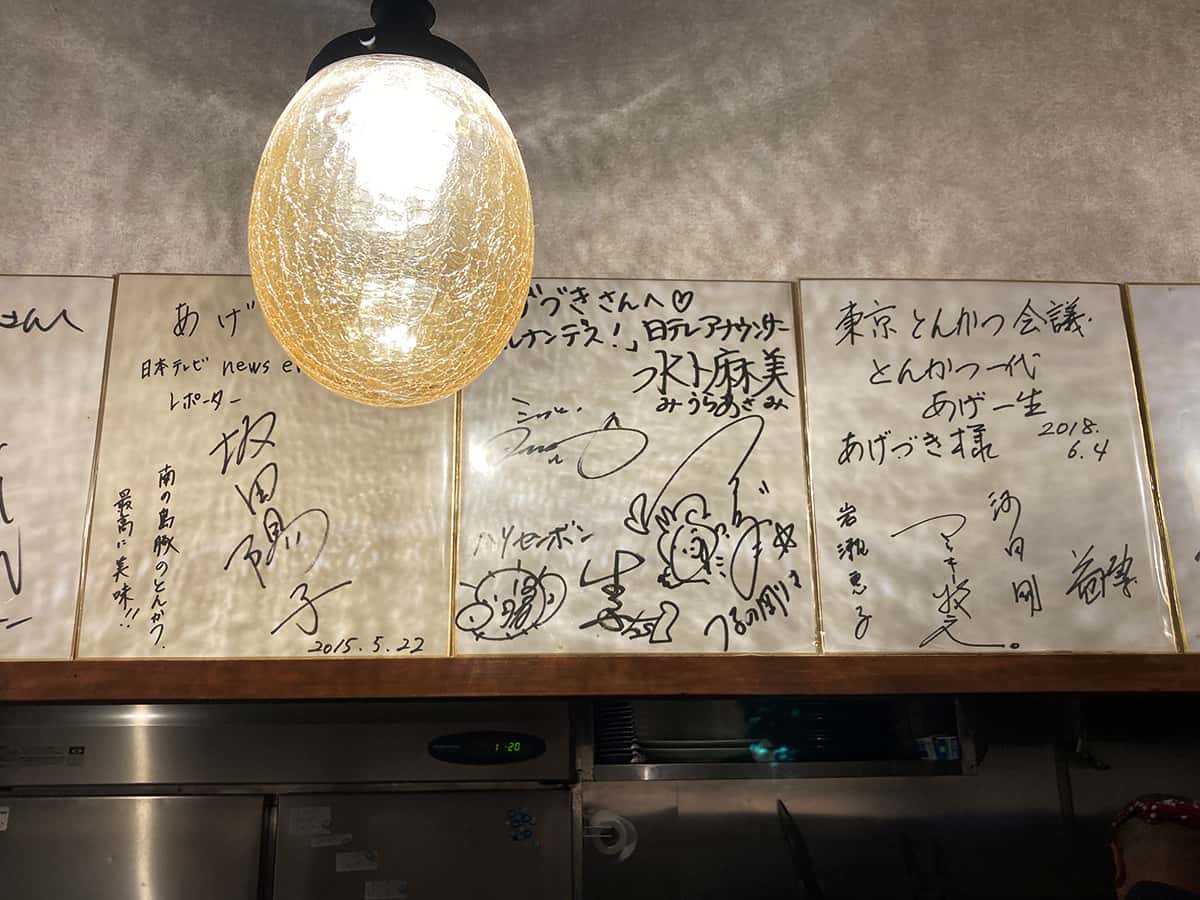 さんへ
あげ
日本テレビ news e
レポーター
坂田陽子
南の島豚のとんかつ
最高に美味!!
2015.5.22
づきさんへ♡
ルナンデス!」日テレアナウンサー
水卜麻美
みうらあさみ
ハリセンボン
つるの剛士
東京とんかつ会議
とんかつ一代
あげ一生
あげづき様
2018.
6.4
岩瀬恵子
マッキー牧元。
河田剛
1 -20